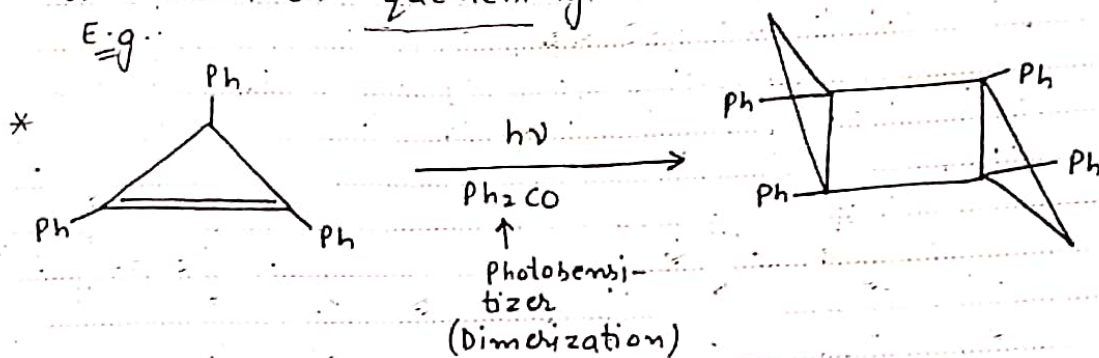 quenching
E.g..
*
Ph
Ph
Ph
hν
Ph₂CO
↑
Photosensi-
tizer
(Dimerization)
Ph
Ph
Ph
Ph